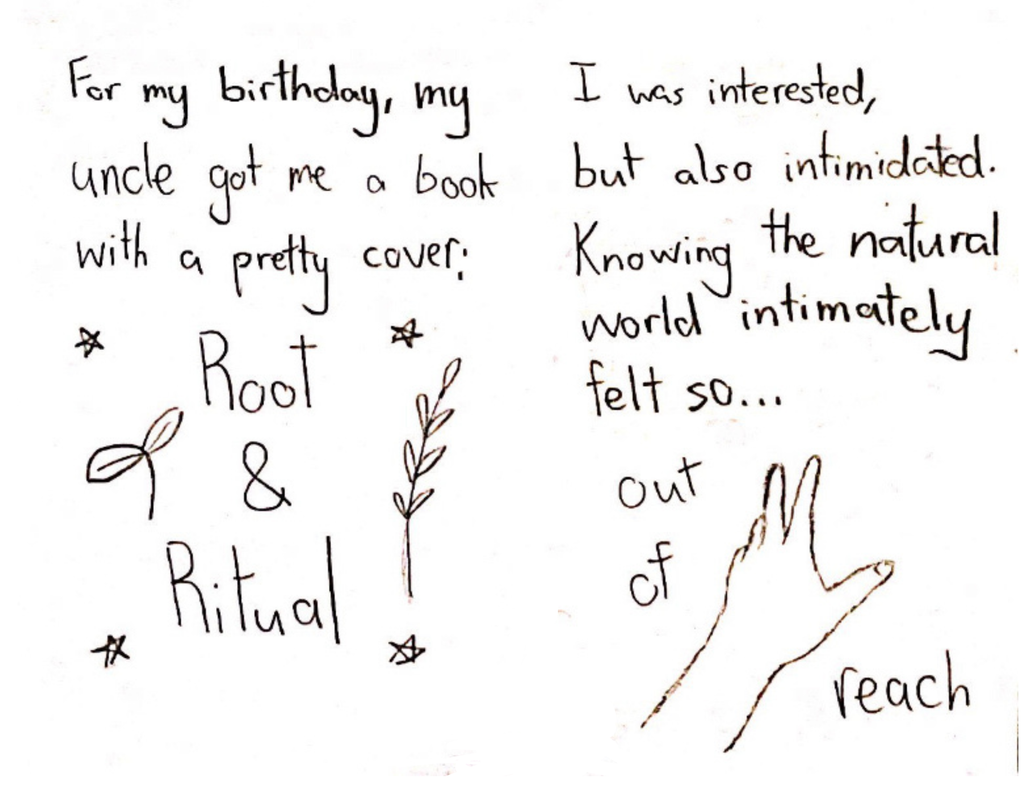 For my birthday, my
uncle got me a book
with a pretty cover:
Root
&
Ritual
I was interested,
but also intimidated.
Knowing the natural
world intimately
felt so...
out
of
reach